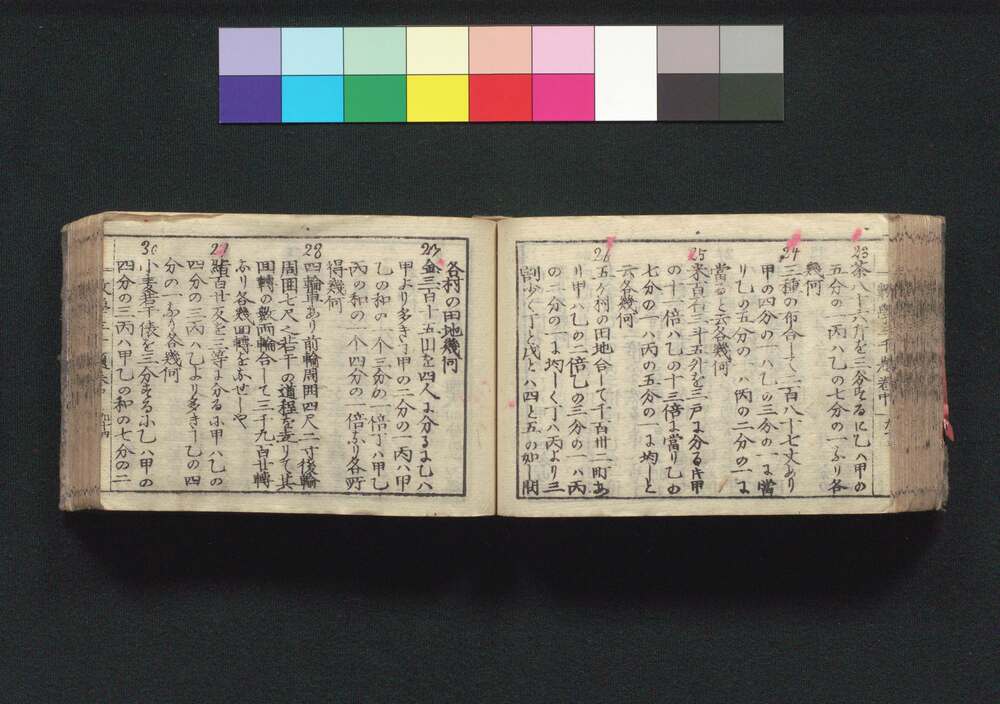 23
茶八十六斤を三分するに乙ハ甲の
五分の一丙ハ乙の七分の一ふり各
幾何
24
三種の布合して二百八十七丈あり
甲の四分の一ハ乙の三分の一に當
り乙の五分の一ハ丙の二分の一に
當ると云各幾何
25
米百三斗五升を三戸に分るに甲
の十一倍ハ乙の十三倍に當り乙の
七分の一ハ丙の五分の一に均しと
云各幾何
26
五ヶ村の田地合して千百卅二町あ
り甲ハ乙の二倍乙の三分の一ハ丙
の二分の一に均しく丁ハ丙より三
割少く丁と戊とハ四と五の如し問
各村の田地幾何
金三百十五円を四人に分るに乙ハ
甲より多き甲の二分の一丙ハ甲
乙の和の一个三分の一倍丁ハ甲乙
丙の和の一个四分の一倍ふり各所
得幾何
28
四輪車あり前輪周囲四尺二寸後輪
周囲七尺之若干の道程を走りて其
回轉の數両輪合して二千九百廿轉
ふり各幾回轉をふせしや
績百廿反を三等に分るに甲ハ乙の
四分の三丙ハ乙より多き乙の四
分の一ふり各幾何
30
小麦若干俵を三分するに乙ハ甲の
四分の三丙ハ甲乙の和の七分の二